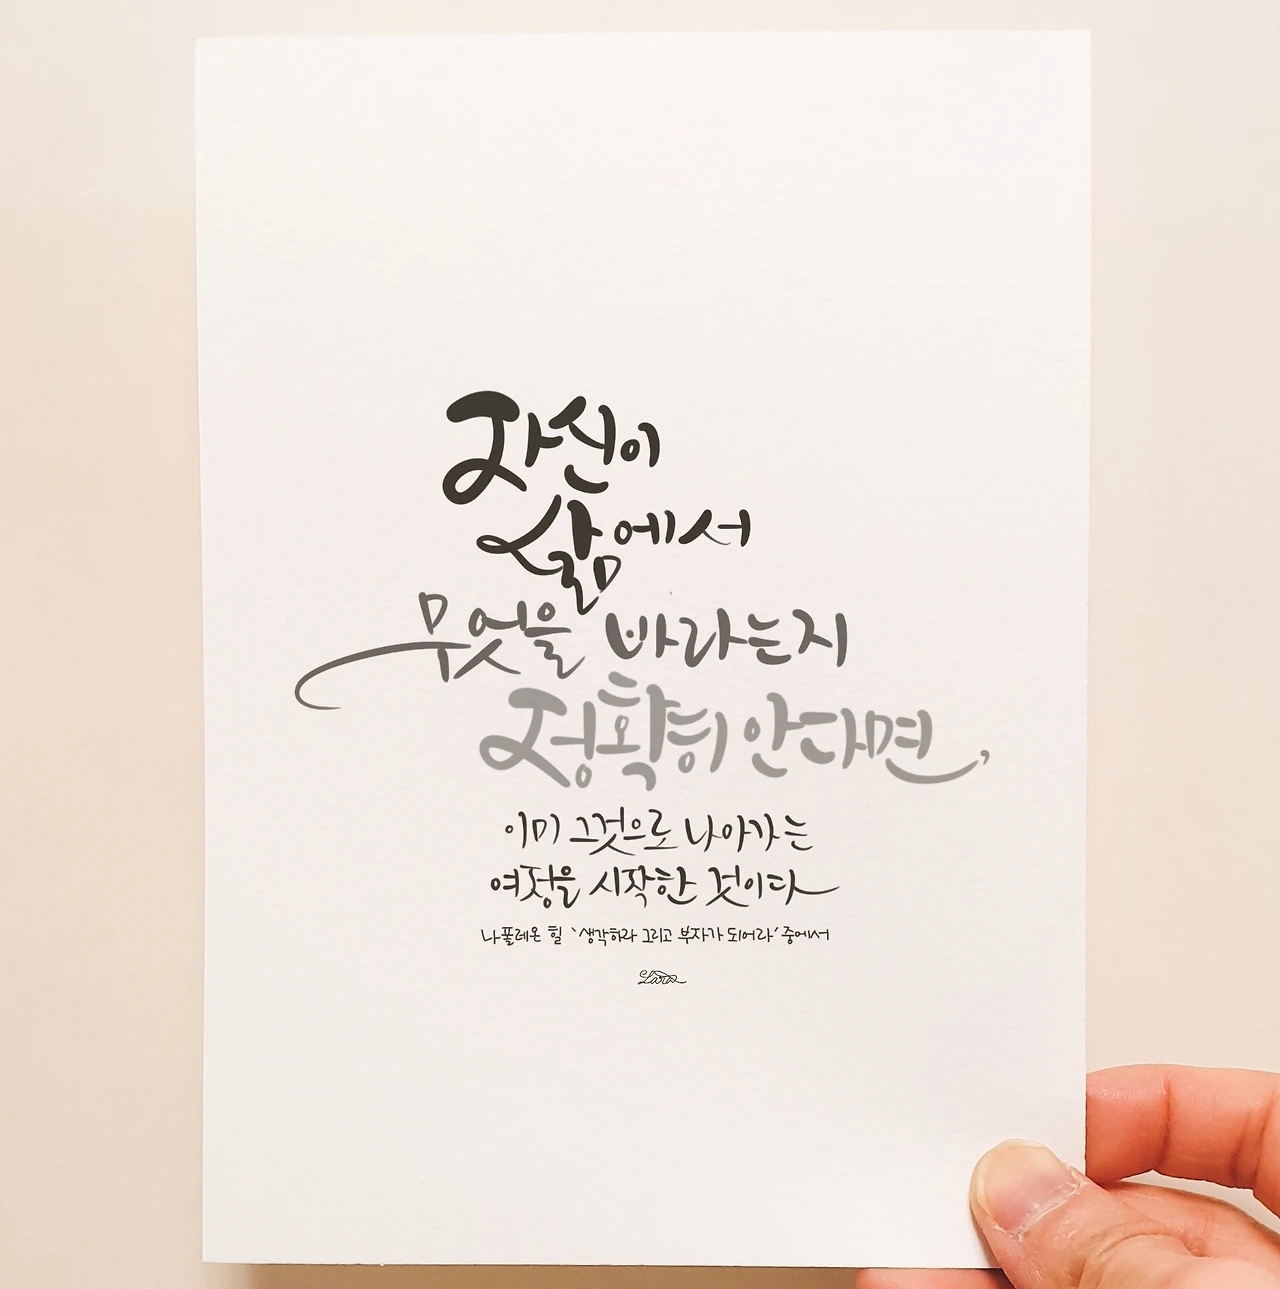 자신이
삶에서
무엇을 바라는지
정확히 안다면,
이미 그것으로 나아가는
여정을 시작한 것이다
나폴레온 힐 '생각하라 그리고 부자가 되어라' 중에서
Lara